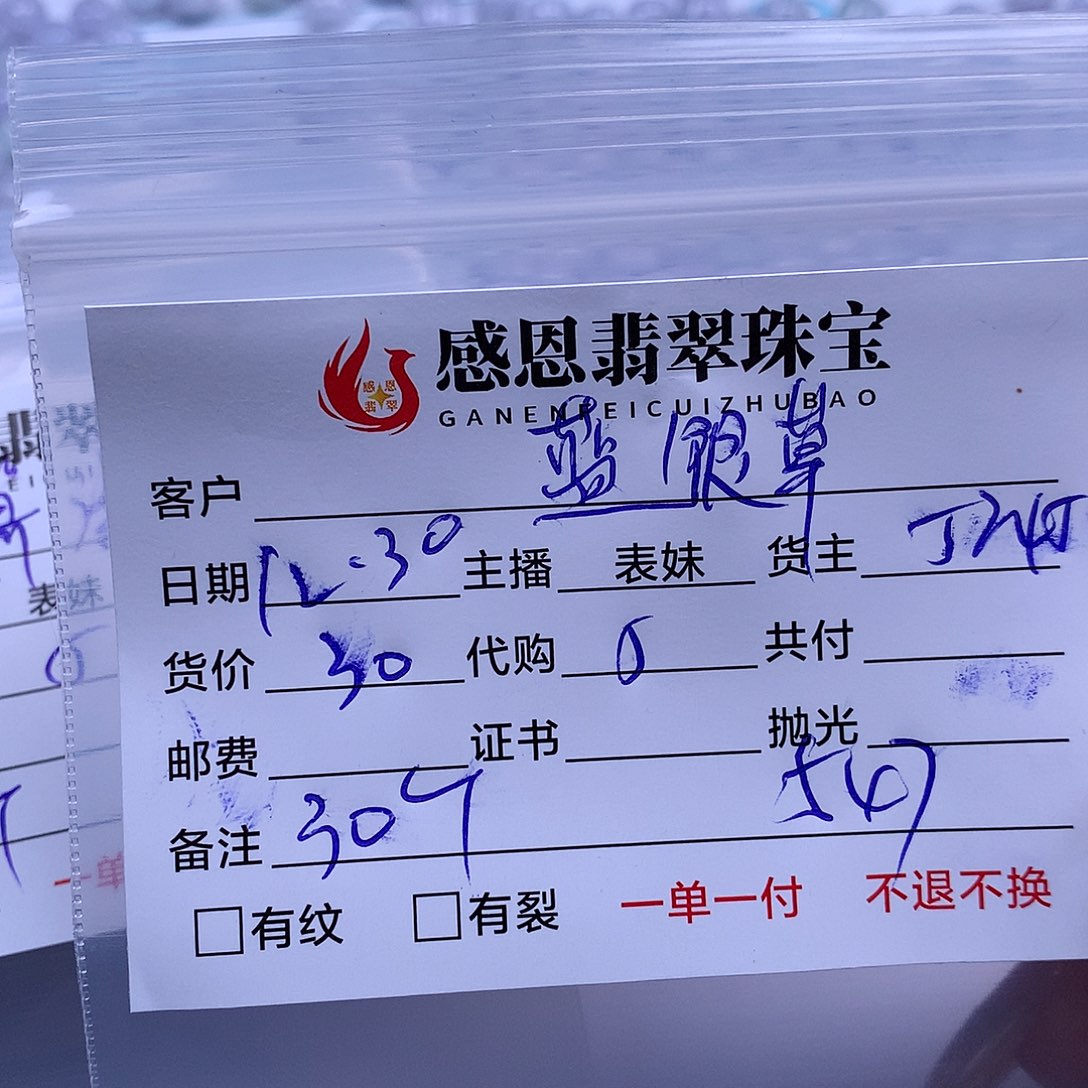 感恩翡翠珠宝
GANENFEICUIZHUBAO
客户 蓝银草
日期 12.30 主播 表妹 货主
货价 30 代购 5 共付
邮费 证书 抛光
备注 30个 547
有纹 有裂 一单一付 不退不换